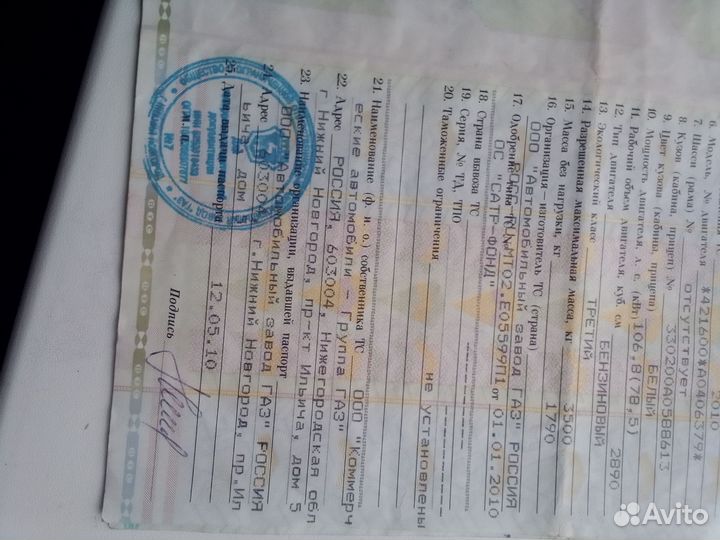 2010
6. Модель, № двигателя *421600*A0406379*
7. Шасси (рама) № отсутствует
8. Кузов (кабина, прицеп) № 330200A0588613
9. Цвет кузова (кабины, прицепа) БЕЛЫЙ
10. Мощность двигателя, л. с. (кВт) 106,8(78,5)
11. Рабочий объем двигателя, куб. см 2890
12. Тип двигателя БЕНЗИНОВЫЙ
13. Экологический класс ТРЕТИЙ
14. Разрешенная максимальная масса, кг 3500
15. Масса без нагрузки, кг 1790
16. Организация – изготовитель ТС (страна)
ООО "Автомобильный завод ГАЗ" РОССИЯ
17. Одобрение типа ТС № RU.MT02.E05599П1 от 01.01.2010
ОС "САТР-ФОНД"
18. Страна вывоза ТС
19. Серия, № ТД, ТПО
20. Таможенные ограничения не установлены
21. Наименование (ф. и. о.) собственника ТС ООО "Коммерч
еские автомобили - Группа ГАЗ"
22. Адрес РОССИЯ, 603004, Нижегородская обл
г Нижний Новгород, пр-кт Ильича, дом 5
23. Наименование организации, выдавшей паспорт
ООО "Автомобильный завод ГАЗ" РОССИЯ
24. Адрес 603004, г.Нижний Новгород, пр.Ил
ьича, дом
25. Дата выдачи паспорта 12.05.10
Подпись
№7
Avito